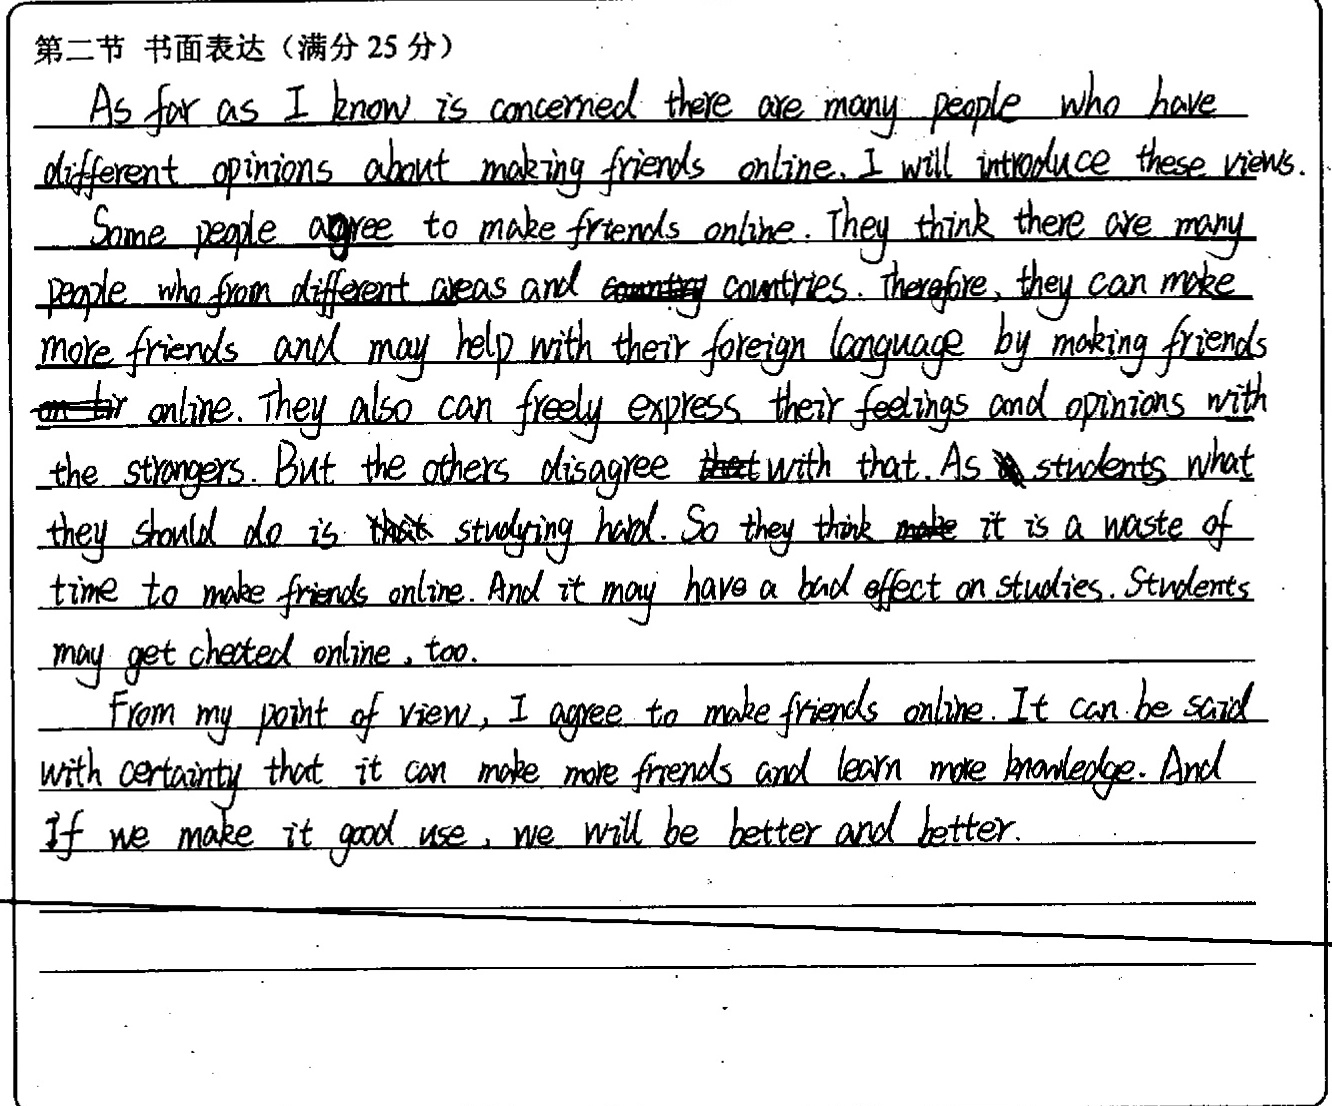 第二节 书面表达（满分 25 分）
As far as I know is concerned there are many people who have
different opinions about making friends online. I will introduce these views.
Some people agree to make friends online. They think there are many
people who from different areas and country countries. Therefore, they can make
more friends and may help with their foreign language by making friends
online. They also can freely express their feelings and opinions with
the strangers. But the others disagree that with that. As students what
they should do is that studying hard. So they think make it is a waste of
time to make friends online. And it may have a bad effect on studies. Students
may get cheated online, too.
From my point of view, I agree to make friends online. It can be said
with certainty that it can make more friends and learn more knowledge. And
If we make it good use, we will be better and better.